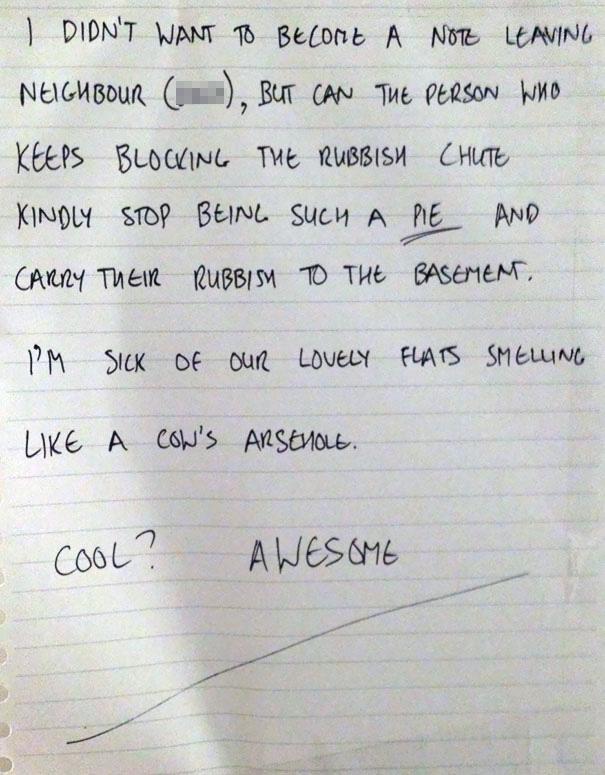 I DIDN'T WANT TO BECOME A NOTE LEAVING
NEIGHBOUR (), BUT CAN THE PERSON WHO
KEEPS BLOCKING THE RUBBISH CHUTE
KINDLY STOP BEING SUCH A PIE AND
CARRY THEIR RUBBISH TO THE BASEMENT.
I'M SICK OF OUR LOVELY FLATS SMELLING
LIKE A COW'S ARSEHOLE.
COOL? AWESOME